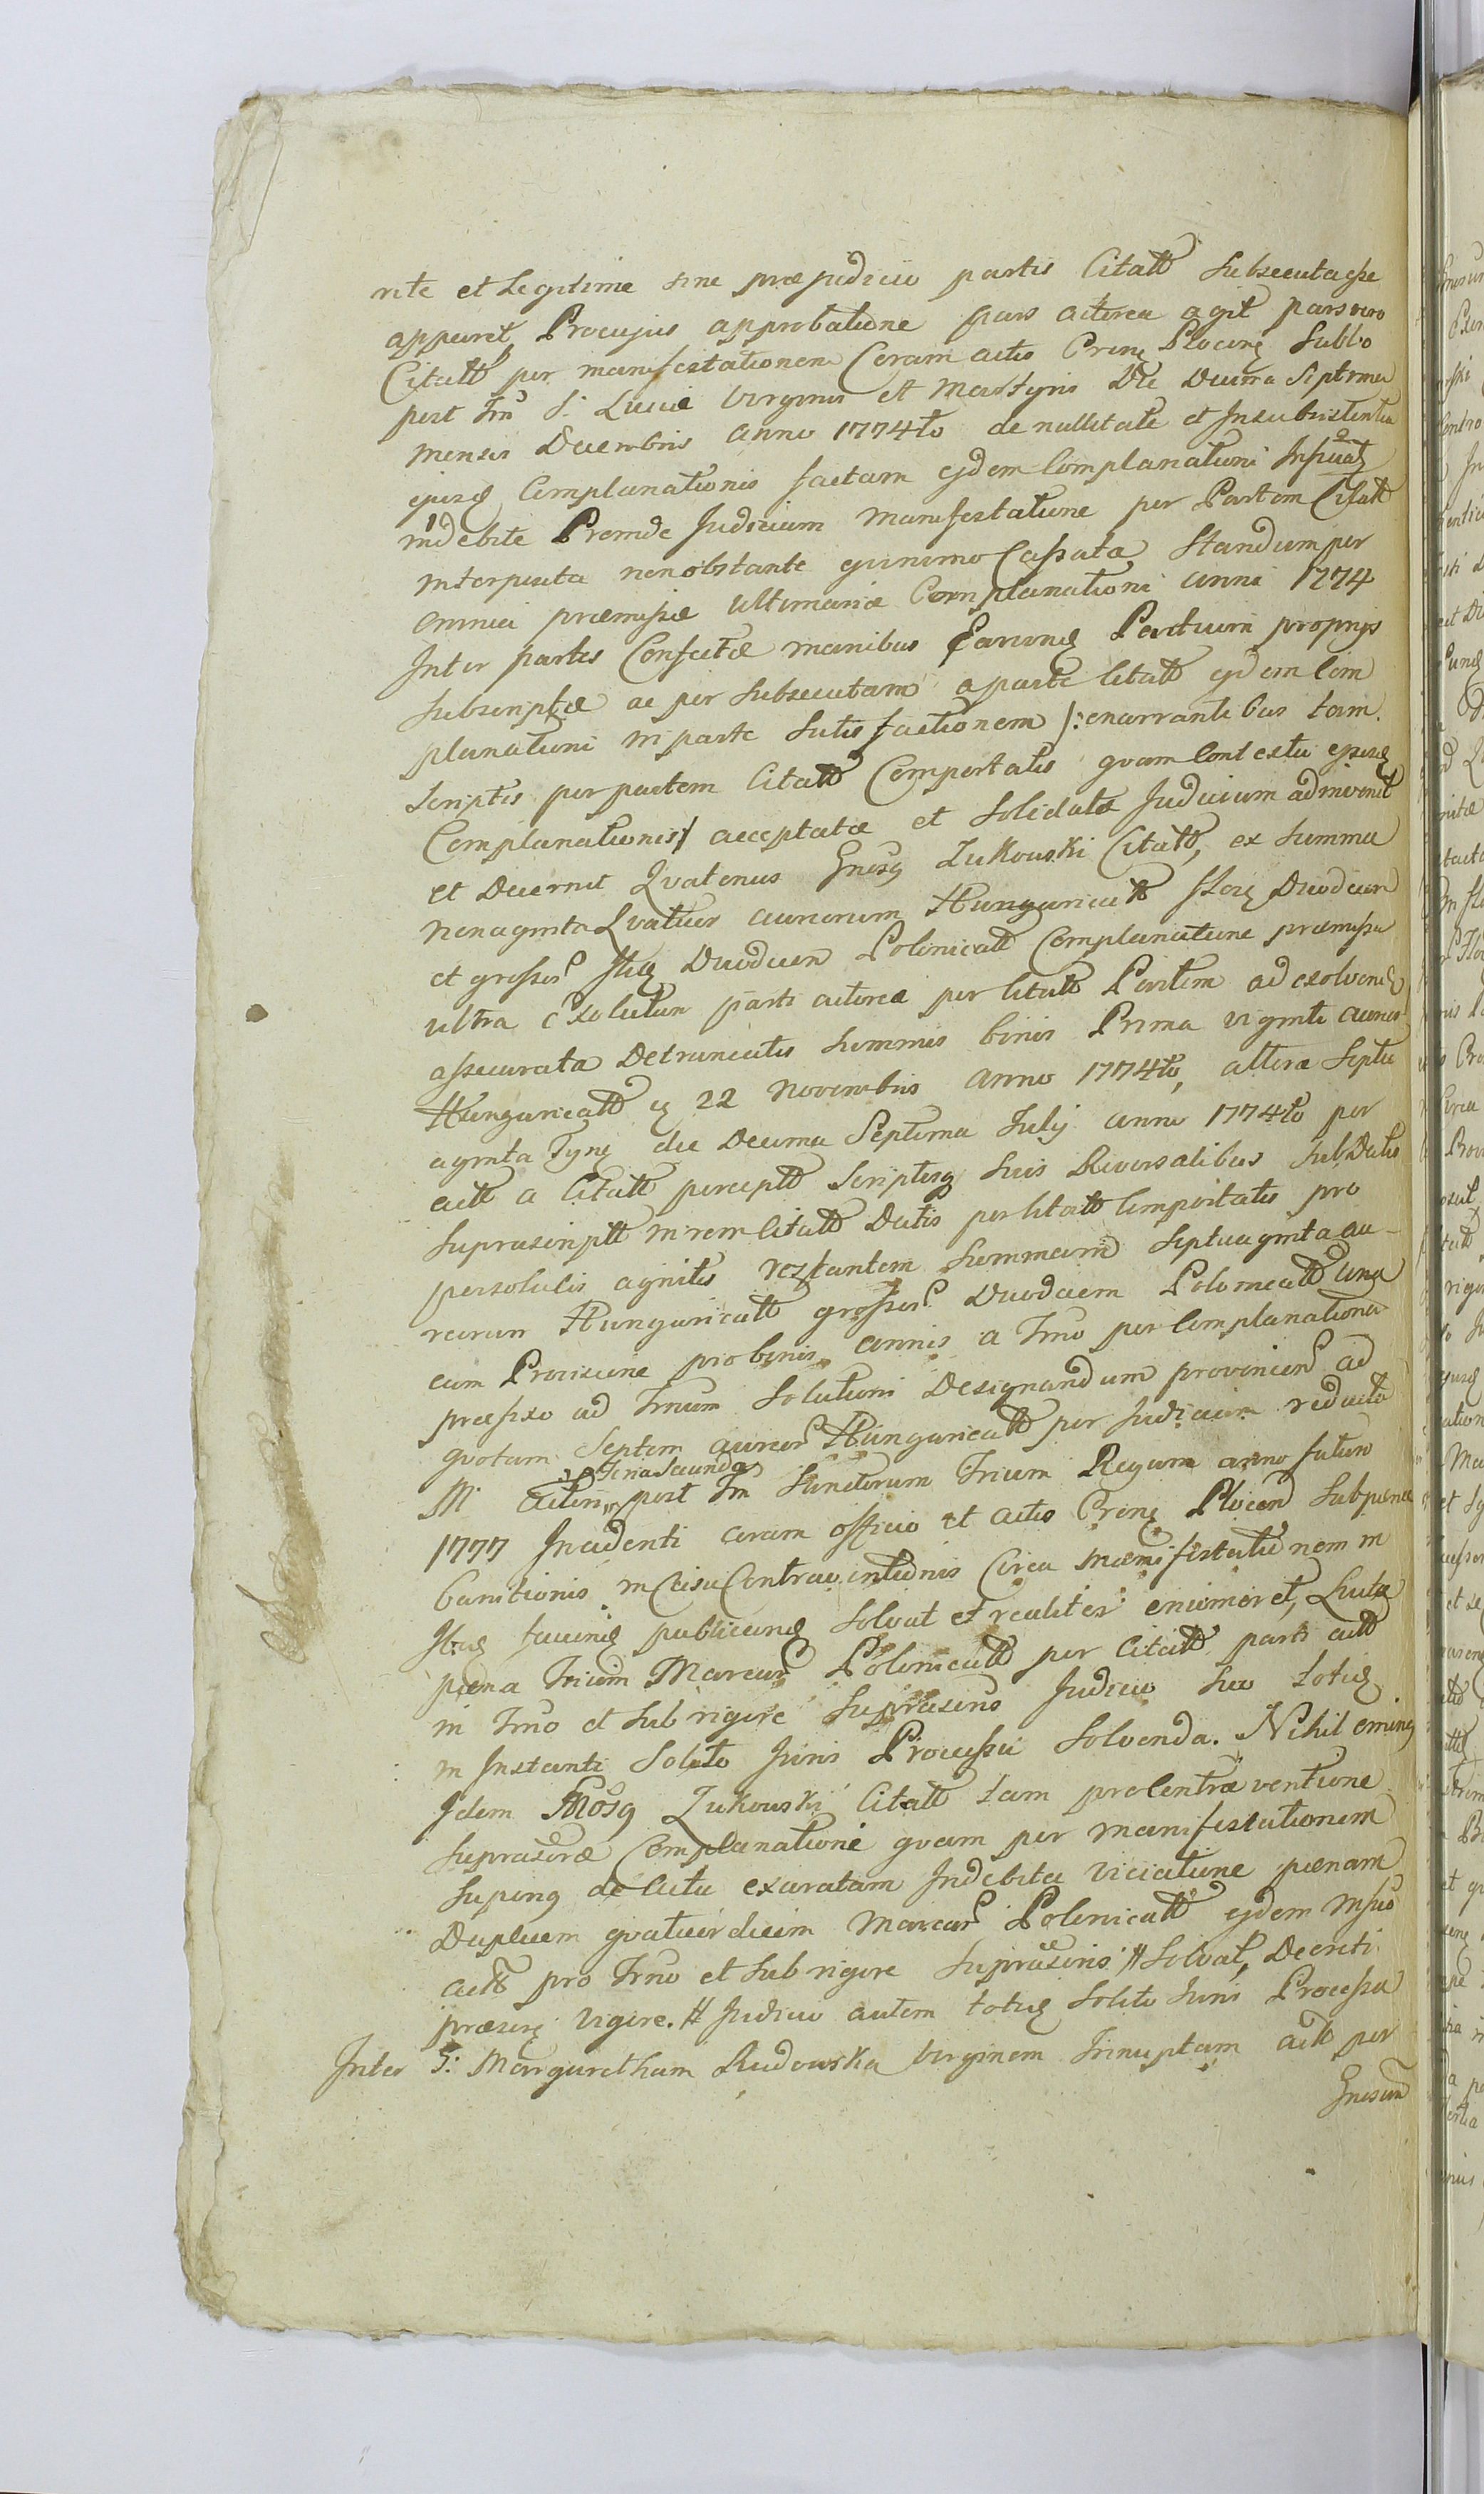 rite et Legitime sine præjudicio partis Citatt Subsecuta esse
apparet Procujus approbatione pars actorea agit pars vero
Citatt per manifestationem Coram actis Cren Plocen Sabbo
post Fm S. Luciæ Virginis et Martyris Die Decima Septima
mensis Decembris anno 1774to de nullitate et Insubsistentia
ejusq Complanationis factam ejdem Complanationi
indebite Proinde Judicium Manifestatione per Partem Citatt
interposita nonobstante quinimo Cassata Standum per
omnia præmissæ ultimariæ Complanationi anni 1774
Inter partes Confectæ manibus Earunq Partium proprijs
Subscriptæ ac per Subsecutam a parte Citatt ejdem Com
planationi in parte Satisfactionem /: enarrantibus tam
scriptis per partem Citatt Comportatis quam Contextu ejusq
Complanationis/ acceptatæ et Solidatæ Judicium adinvenit
et Decernit Quatenus Gnosq Zukowski Citatt, ex Summa
nonaginta Quatuor aureorum Hungaricatt Duodecim
et grossor Duodecim Polonicatt Complanatione præmissa
ultra exolutam parti actoreæ per Citatt Partem ad exolvend
assecurata Detruncatis Summis binis Prima viginti aureor
Hungaricatt 22 Novembris anno 1774to, altera Septu
aginta die Decima Septima Julij anno 1774to per
actt a Citatt perceptt Scriptisq suis Reversalibus Sub Datis
Suprascriptt in rem Citatt Datis per Citatt Comportatis pro
persolutis agnitis restantem Summam Septuaginta au-
reorum Hungaricatt grossor Duodecim Polonicatt una
cum Provisione pro binis annis a Fmo per Complanationem
præfixo ad Fmum Solutioni Designandum provenien ad
quotam Septem aureor Hungaricatt per Judicium reducta
Feria Secunda
M. Actori post Fm Sanctorum Trium Regum anno futuro
1777 Incidenti coram officio et actis Cren Plocen Sub pæna
banitionis in Casu Contraventionis Circa manifestationem in
publicanq Solvat et realiter enumeret, Luita
pæna Trium Marcar Polonicatt per Citatt parti actt
in Fmo et Sub rigore Suprascrip Judicio suo totiq
in Instanti Solito Juris Processu Solvenda. Nihil ominq
Idem Gnosq Zukowski Citatt tam pro Contraventione
Suprascræ Complanationi quam per manifestationem
Superinq de Actu exaratam Indebita viciatione pænam
Duplicem quatuordecim Marcar Polonicatt ejdem
actt pro Fmo et Sub rigore Suprascris # Solvat, Decreti
præsen vigore. # Judicio autem totiq Solito Juris Processu
Inter G: Margaretham Rudowska Virginem Innuptam actt per
Gnosum